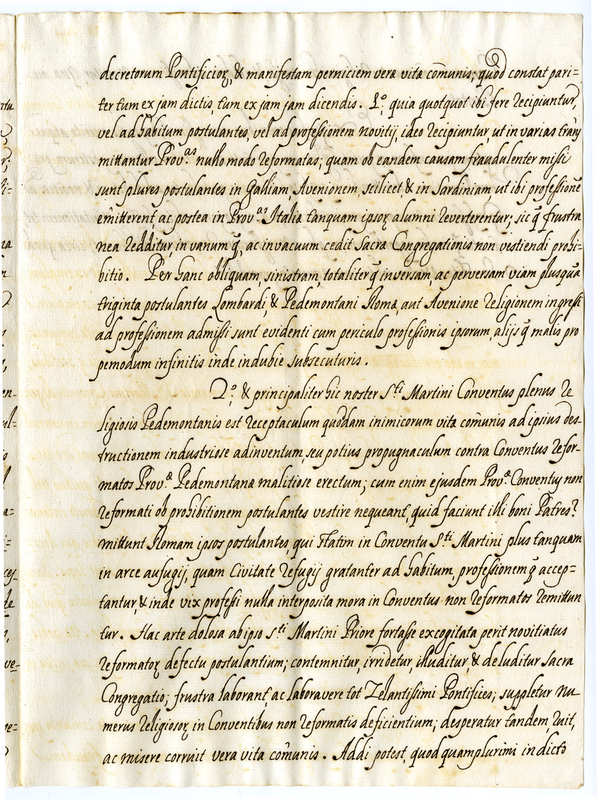 decretorum Pontificioꝝ, & manifestam perniciem vera vita com̃unis; quod constat pari=
ter tum ex jam dictis, tum ex jam jam dicendis. Pº. quia quotquot ibi fere recipiuntur,
vel ad habitum postulantes, vel ad professionem novitij, ideo recipiuntur, ut in varias trans
mittantur Prov.ᵃˢ nullo modo reformatas; quam ob eandem causam fraudulenter missi
sunt plures postulantes in Galliam, Avenionem, scilicet, & in Sardiniam ut ibi professionẽ
em̃itterent ac postea in Prov.ᵃˢ Italia tanquam ipsoꝝ alumni reverterentur; sic q̃ frustra
nea redditur, in vanum q̃, ac in vacuum cedit Sacra Congregationis non vestiendi prohi=
bitio. Per hanc obliquam, sinistram, totaliter q̃ inversam, ac perversam viam plusquã
triginta postulantes Lombardi, & Pedemontani Roma, aut Avenione religionem ingressi
ad professionem admissi sunt evidenti cum periculo professionis ipsorum, alijs q̃ malis pro
pemodum infinitis inde indubie subsecuturis.
2º. & principaliter hic noster S.ᵗⁱ Martini Conventus plenus re
ligiosis Pedemontanis est receptaculum quoddam inimicorum vita com̃unis ad ipsius des=
tructionem industriose adinventum, seu potius propugnaculum contra Conventus refor=
matos Prov.ᵃ Pedemontana malitiose erectum; cum enim ejusdem Prov.ᵃ Conventus non
reformati ob prohibitionem postulantes vestire nequeant, quid faciunt illi boni Patres?
mittunt Romam ipsos postulantes, qui statim in Conventu S.ᵗⁱ Martini plus tanquam
in arce aufugij, quam Civitate refugij gratanter ad habitum, professionem q̃ accep=
tantur, & inde vix professi nulla interposita mora in Conventus non reformatos remittun
tur. Hac arte dolosa ab ipso S.ᵗⁱ Martini Priore fortasse excogitata perit novitiatus
reformatoꝝ defectu postulantium; contemnitur, irridetur, illuditur, & deluditur sacra
Congregatio; frustra laborant, ac laboravere tot Zelantissimi Pontifices; suppletur nu
merus religiosoꝝ in Conventibus non reformatis deficientium; desperatur tandem ruit,
ac misere corruit vera vita com̃unis. Addi potest, quod quamplurimi in dicto